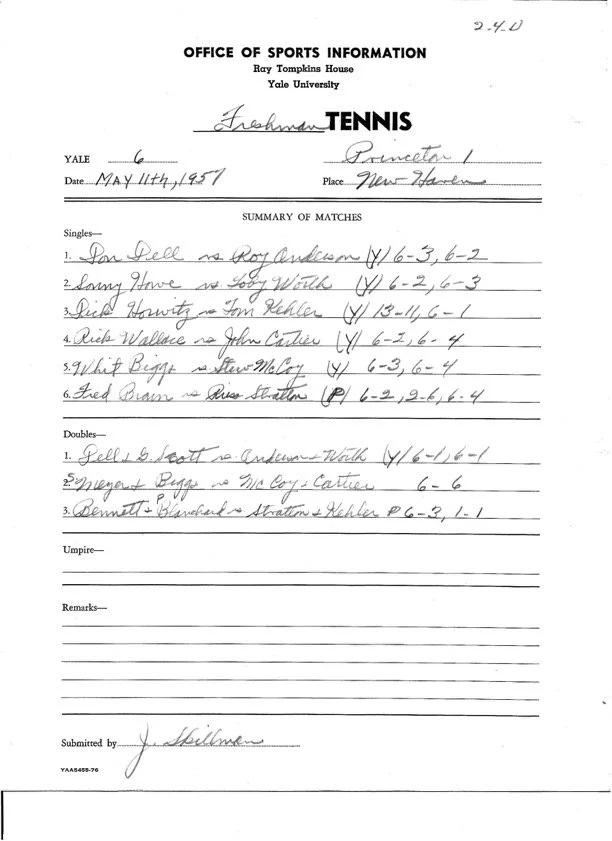 2-4-0
OFFICE OF SPORTS INFORMATION
Ray Tompkins House
Yale University
Freshman TENNIS
YALE 6 Princeton 1
Date MAY 11th, 1957 Place New Haven
SUMMARY OF MATCHES
Singles—
1. Don Dell vs Roy Anderson (Y) 6-3, 6-2
2. Sonny Howe vs. Toby Worth (Y) 6-2, 6-3
3. Dick Horwitz vs Tom Kehler (Y) 13-11, 6-1
4. Rick Wallace vs John Cartier (Y) 6-2, 6-4
5. Whit Biggs vs Stew McCoy (Y) 6-3, 6-4
6. Fred Brain vs Stratton (P) 6-2, 2-6, 6-4
Doubles—
1. Dell & G. Scott vs. Anderson & Worth (Y) 6-1, 6-1
2. Meyer & Biggs vs McCoy & Cartier 6-6
3. Bennett & P Blanchard vs Stratton & Kehler P 6-3, 1-1
Umpire—
Remarks—
Submitted by J. Skillman
YAA5455-76